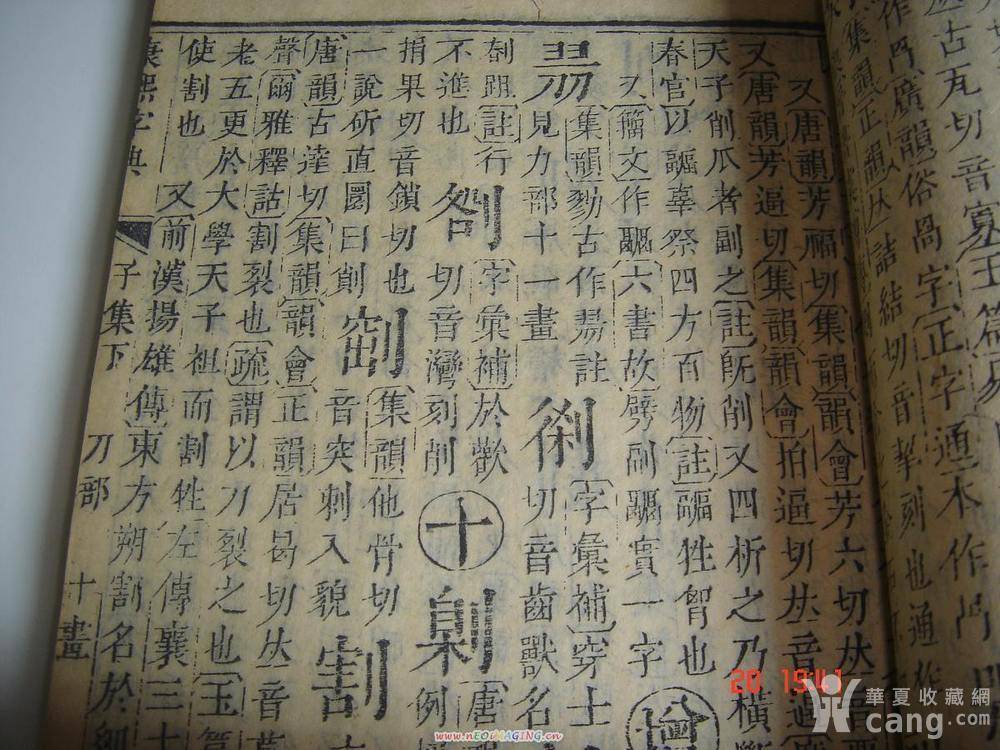 又唐韻芳福切集韻韻會芳六切𠀤音
又唐韻芳逼切集韻韻會拍逼切𠀤音
天子削瓜者副之註旣削又四析之乃橫
春官以疈辜祭四方百物註疈牲胷也
又籀文作疈六書故劈副疈實一字
集韻勥古作勥註
見力部十一畫
字彙補穿士
切音齒獸名
註行
不進也
字彙補於歡
切音灣刻削
十
唐
例
捐果切音鎖切也
一說斫直圜曰剒
集韻他骨切
音突刺入貌
割
唐韻古達切集韻韻會正韻居曷切𠀤音
爾雅釋詁割裂也疏謂以刀裂之也玉
老五更於大學天子袒而割牲左傳襄三十
使割也
又前漢揚雄傳東方朔割名於
康熙字典
子集下
刀部
十畫
古瓦切音寡玉篇
作冎廣韻俗咼字正字通本作冎
集韻正韻𠀤詰結切音挈刻也通作
20 15:41
www.nEOiMAGiNG.cn
華夏收藏網
cang.com